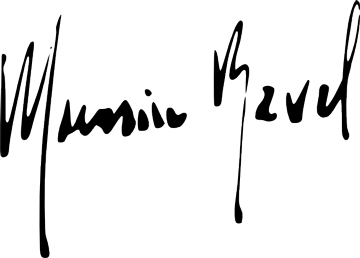 Maurice Ravel